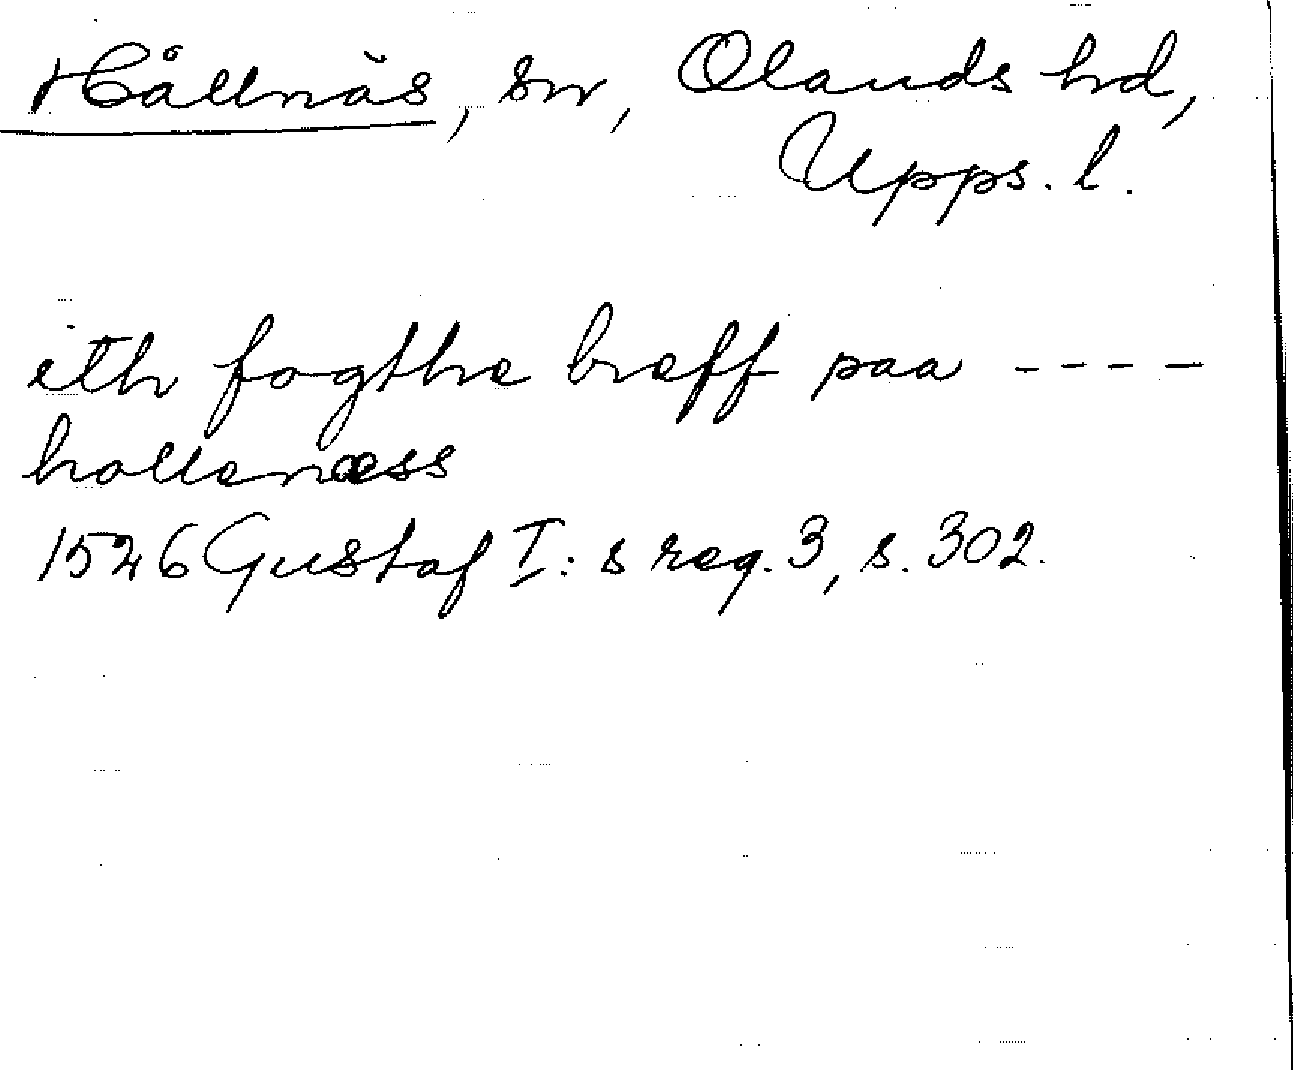 Hållnäs, sn, Olands hd,
Upps. l.
ith fogthe breff paa ----
hollenæss
1526 Gustaf I:s reg. 3, s. 302.